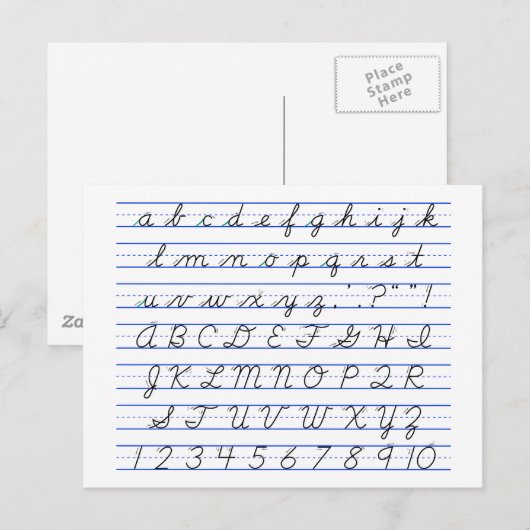 Place
Stamp
Here
Za
a b c d e f g h i j k
l m n o p q r s t
u v w x y z . ' . ? “ ” !
A B C D E F G H I
J K L M N O P Q R
S T U V W X Y Z
1 2 3 4 5 6 7 8 9 10